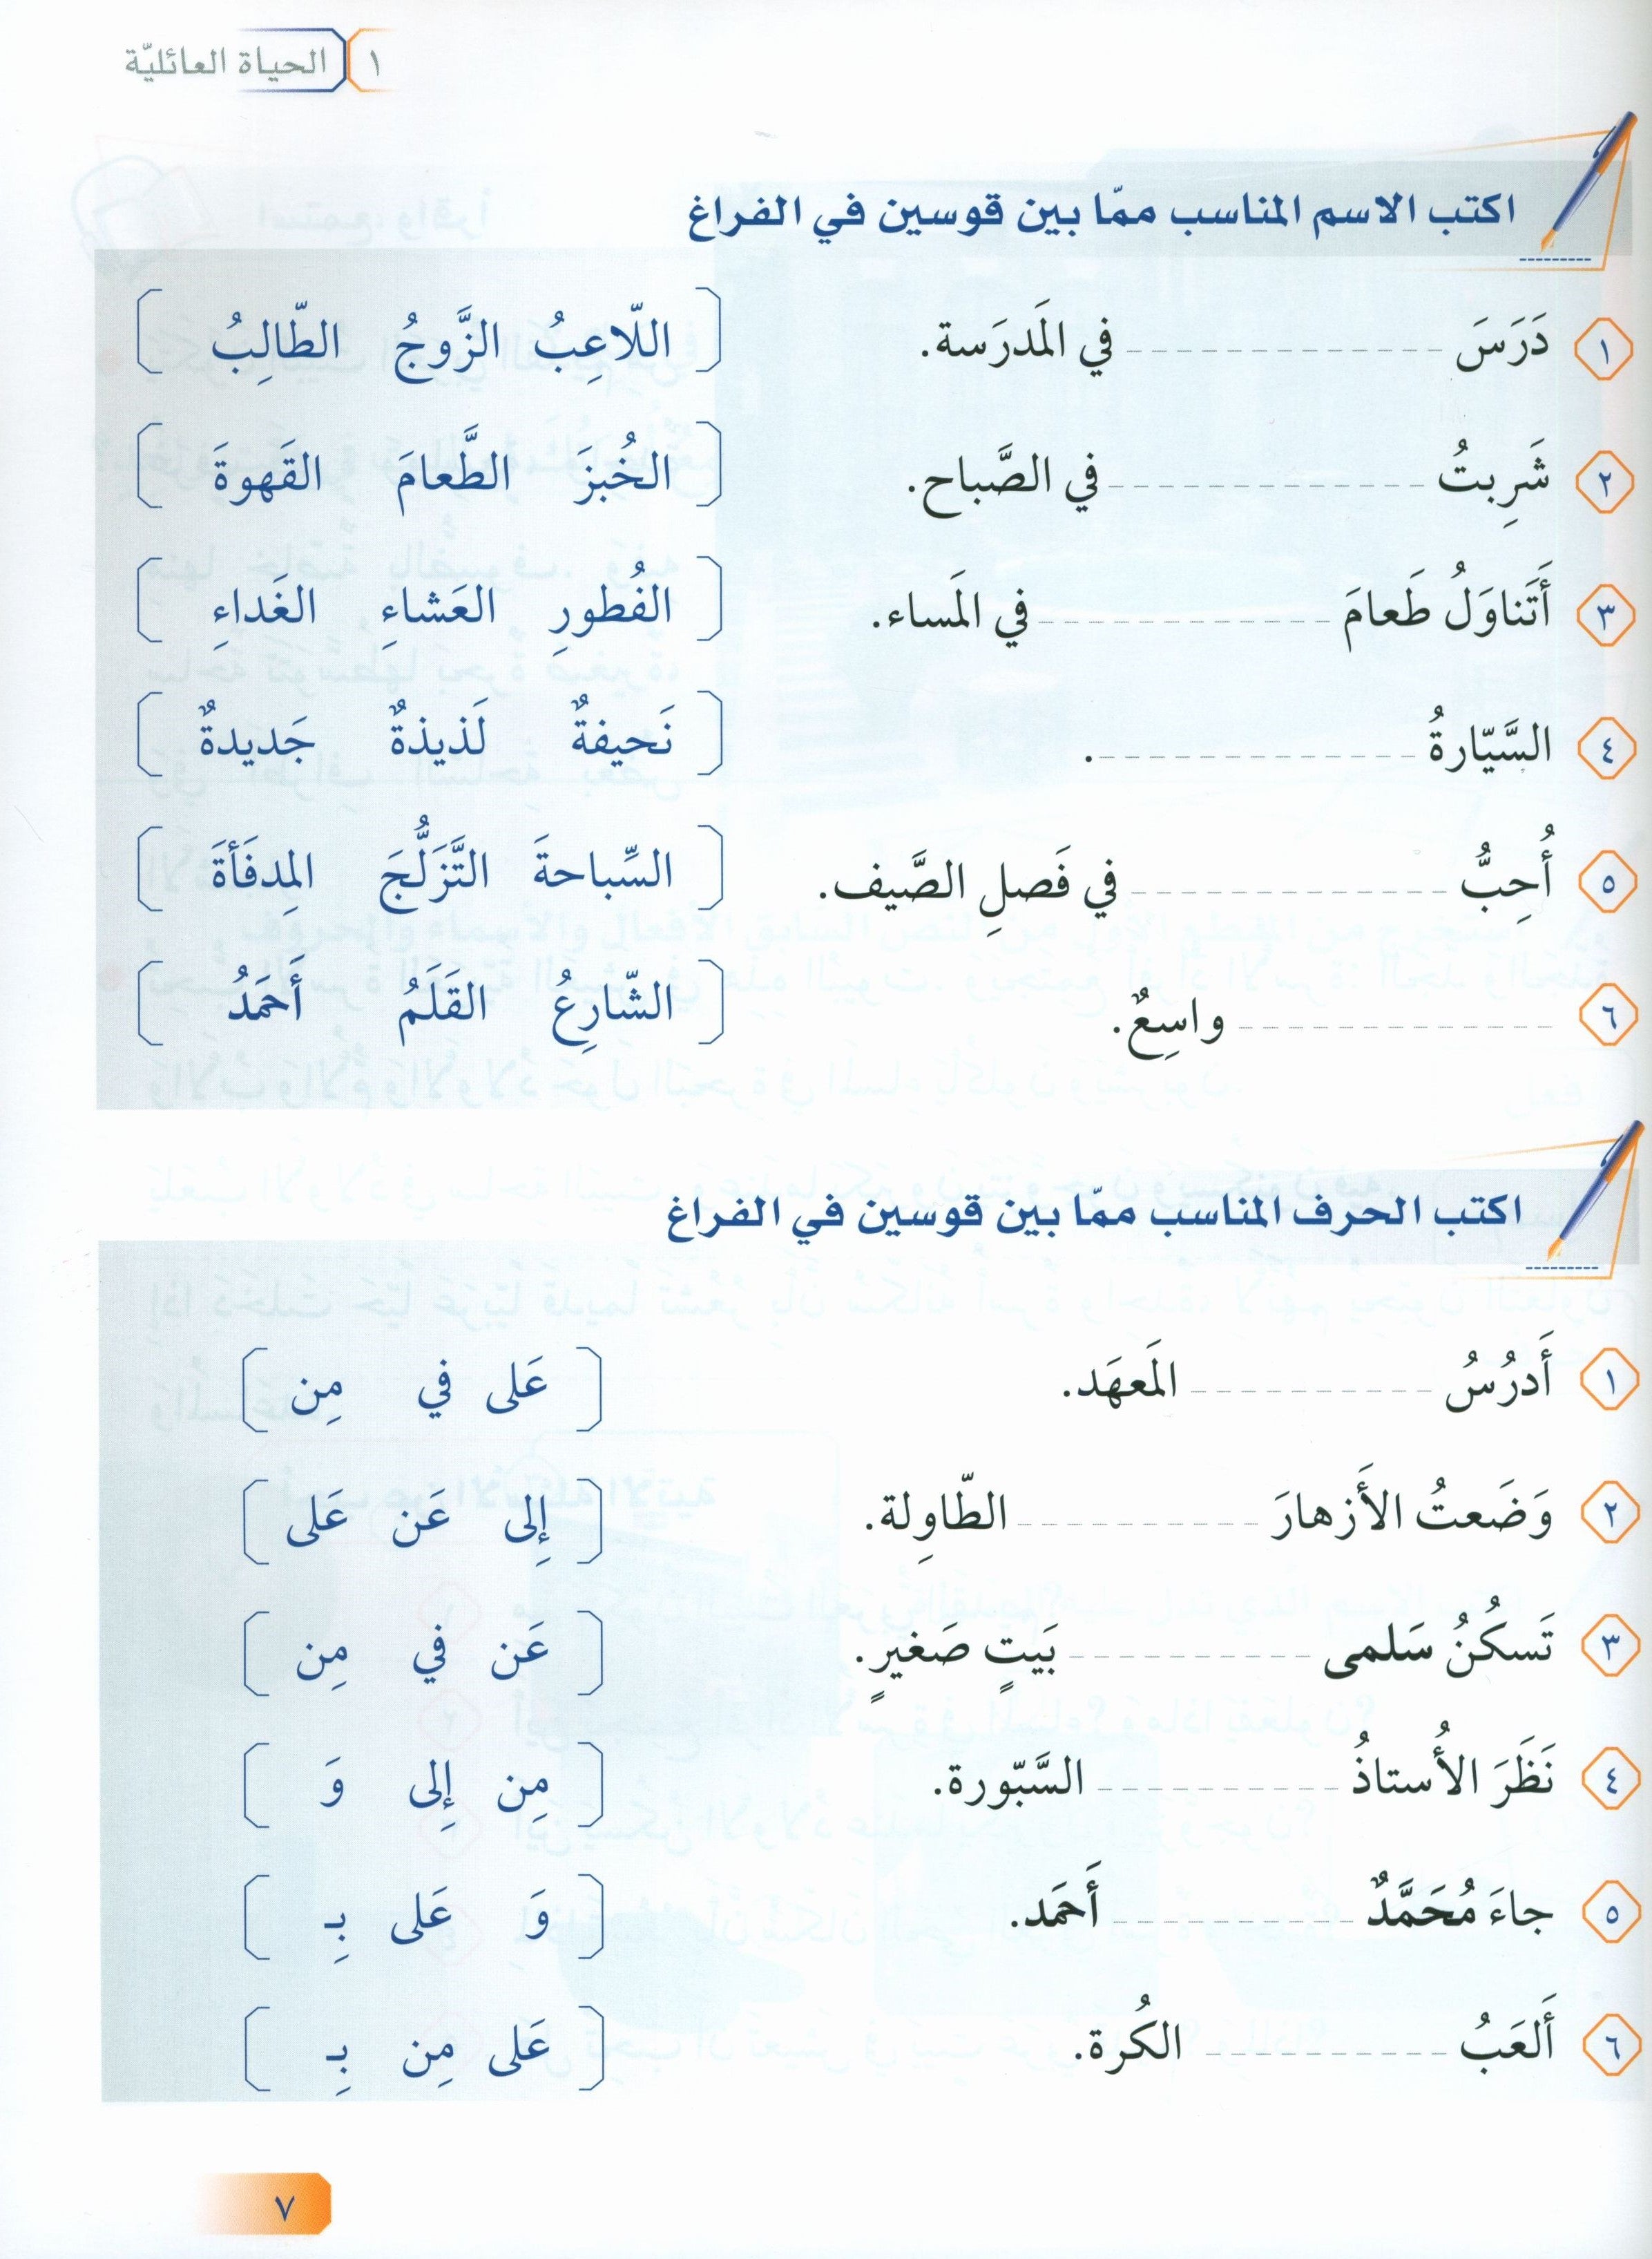 ١ الحياة العائليّة
اكتب الاسم المناسب ممّا بين قوسين في الفراغ
١ دَرَسَ ـــــ في المَدرَسة. [ اللّاعِبُ الزَّوجُ الطّالِبُ ]
٢ شَرِبتُ ـــــ في الصَّباح. [ الخُبزَ الطَّعامَ القَهوةَ ]
٣ أَتَناوَلُ طَعامَ ـــــ في المَساء. [ الفُطورِ العَشاءِ الغَداءِ ]
٤ السَّيّارةُ ـــــ. [ نَحيفةٌ لَذيذةٌ جَديدةٌ ]
٥ أُحِبُّ ـــــ في فَصلِ الصَّيف. [ السِّباحةَ التَّزَلُّجَ المِدفَأةَ ]
٦ ـــــ واسِعٌ. [ الشّارِعُ القَلَمُ أَحمَدُ ]
اكتب الحرف المناسب ممّا بين قوسين في الفراغ
١ أَدرُسُ ـــــ المَعهَد. [ عَلى في مِن ]
٢ وَضَعتُ الأَزهارَ ـــــ الطّاوِلة. [ إِلى عَن عَلى ]
٣ تَسكُنُ سَلمى ـــــ بَيتٍ صَغيرٍ. [ عَن في مِن ]
٤ نَظَرَ الأُستاذُ ـــــ السَّبّورة. [ مِن إِلى وَ ]
٥ جاءَ مُحَمَّدٌ ـــــ أَحمَد. [ وَ عَلى بِـ ]
٦ أَلعَبُ ـــــ الكُرة. [ عَلى مِن بِـ ]
٧